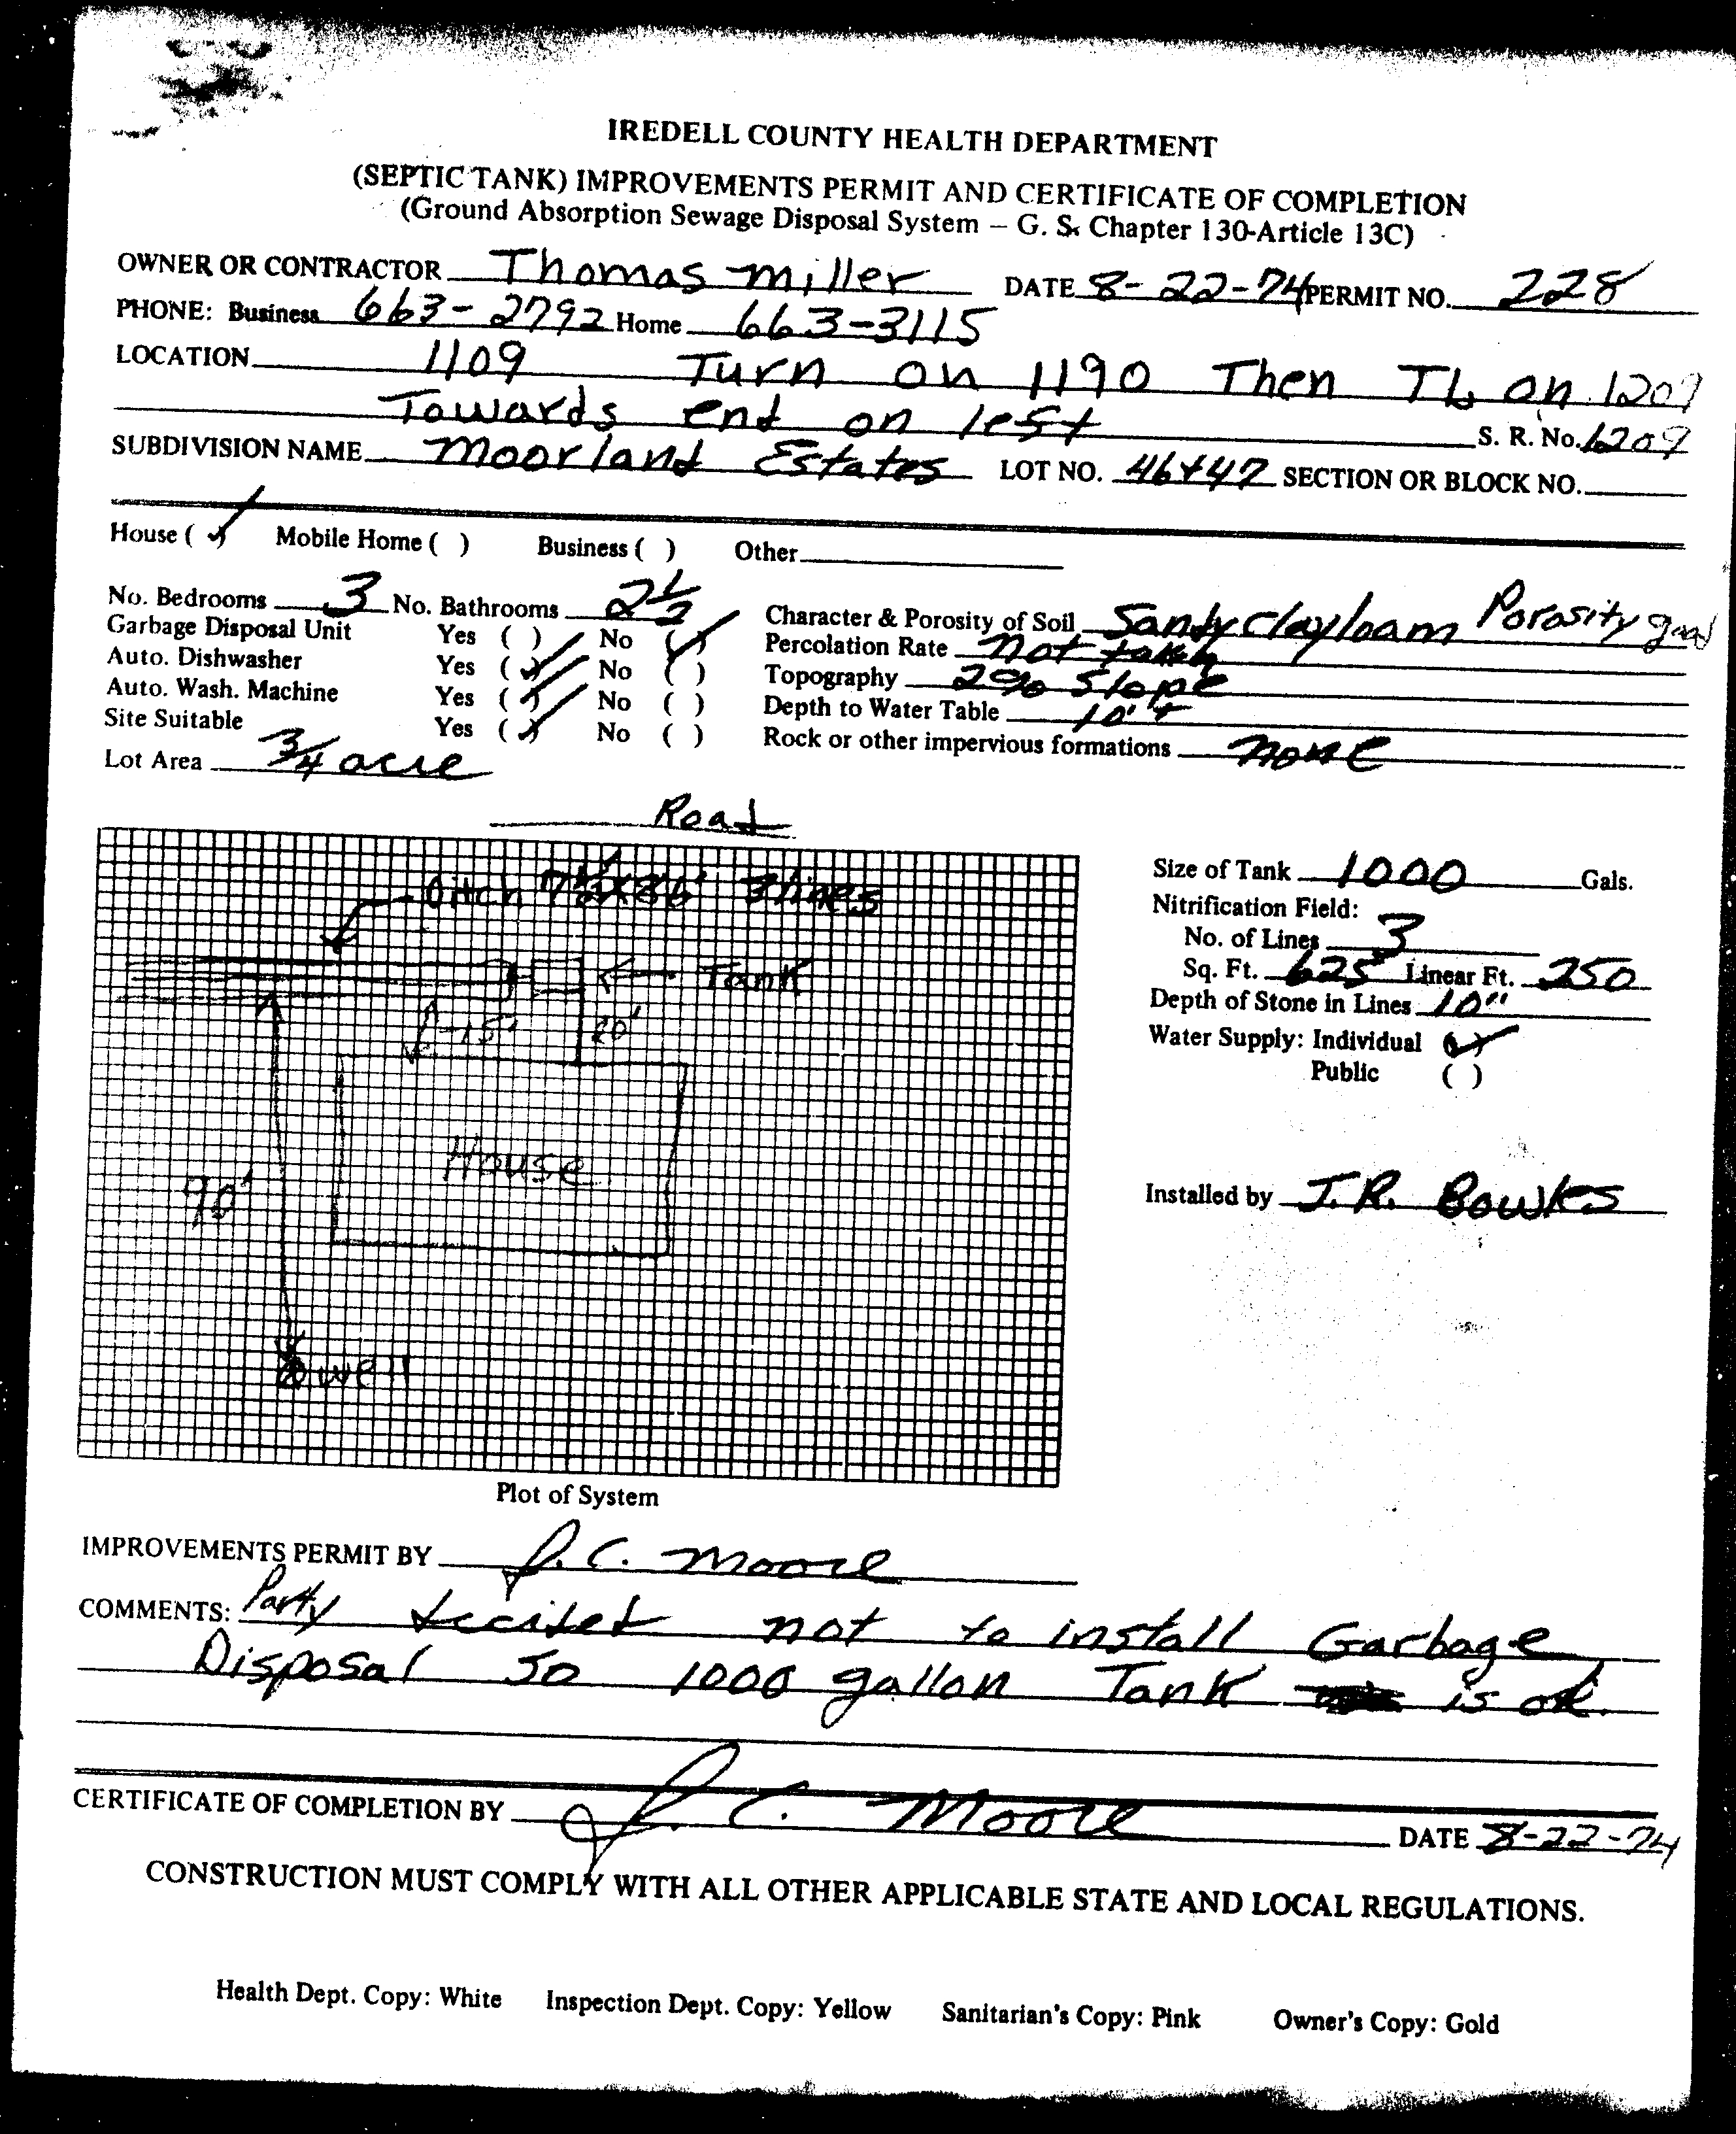 IREDELL COUNTY HEALTH DEPARTMENT
(SEPTIC TANK) IMPROVEMENTS PERMIT AND CERTIFICATE OF COMPLETION
(Ground Absorption Sewage Disposal System – G. S. Chapter 130-Article 13C)
OWNER OR CONTRACTOR Thomas Miller DATE 8-22-74 PERMIT NO. 228
PHONE: Business 663-2792 Home 663-3115
LOCATION 1109 Turn on 1190 Then TL on 1209
Towards end on left S. R. No. 1209
SUBDIVISION NAME Moorland Estates LOT NO. 46+47 SECTION OR BLOCK NO.
House (✓) Mobile Home ( ) Business ( ) Other
No. Bedrooms 3 No. Bathrooms 2 1/2 Character & Porosity of Soil Sandy clay loam Porosity good
Garbage Disposal Unit Yes ( ) No (✓) Percolation Rate not taken
Auto. Dishwasher Yes (✓) No ( ) Topography 2% Slope
Auto. Wash. Machine Yes (✓) No ( ) Depth to Water Table 10'+
Site Suitable Yes (✓) No ( ) Rock or other impervious formations none
Lot Area 3/4 acre
Road
Ditch 3 lines
Tank
15' 20'
House
90'
well
Plot of System
Size of Tank 1000 Gals.
Nitrification Field:
No. of Lines 3
Sq. Ft. 625 Linear Ft. 250
Depth of Stone in Lines 10"
Water Supply: Individual (✓)
Public ( )
Installed by J.R. Bowles
IMPROVEMENTS PERMIT BY J. C. Moore
COMMENTS: Party decided not to install Garbage
Disposal so 1000 gallon Tank is ok.
CERTIFICATE OF COMPLETION BY J. C. Moore DATE 8-22-74
CONSTRUCTION MUST COMPLY WITH ALL OTHER APPLICABLE STATE AND LOCAL REGULATIONS.
Health Dept. Copy: White Inspection Dept. Copy: Yellow Sanitarian's Copy: Pink Owner's Copy: Gold